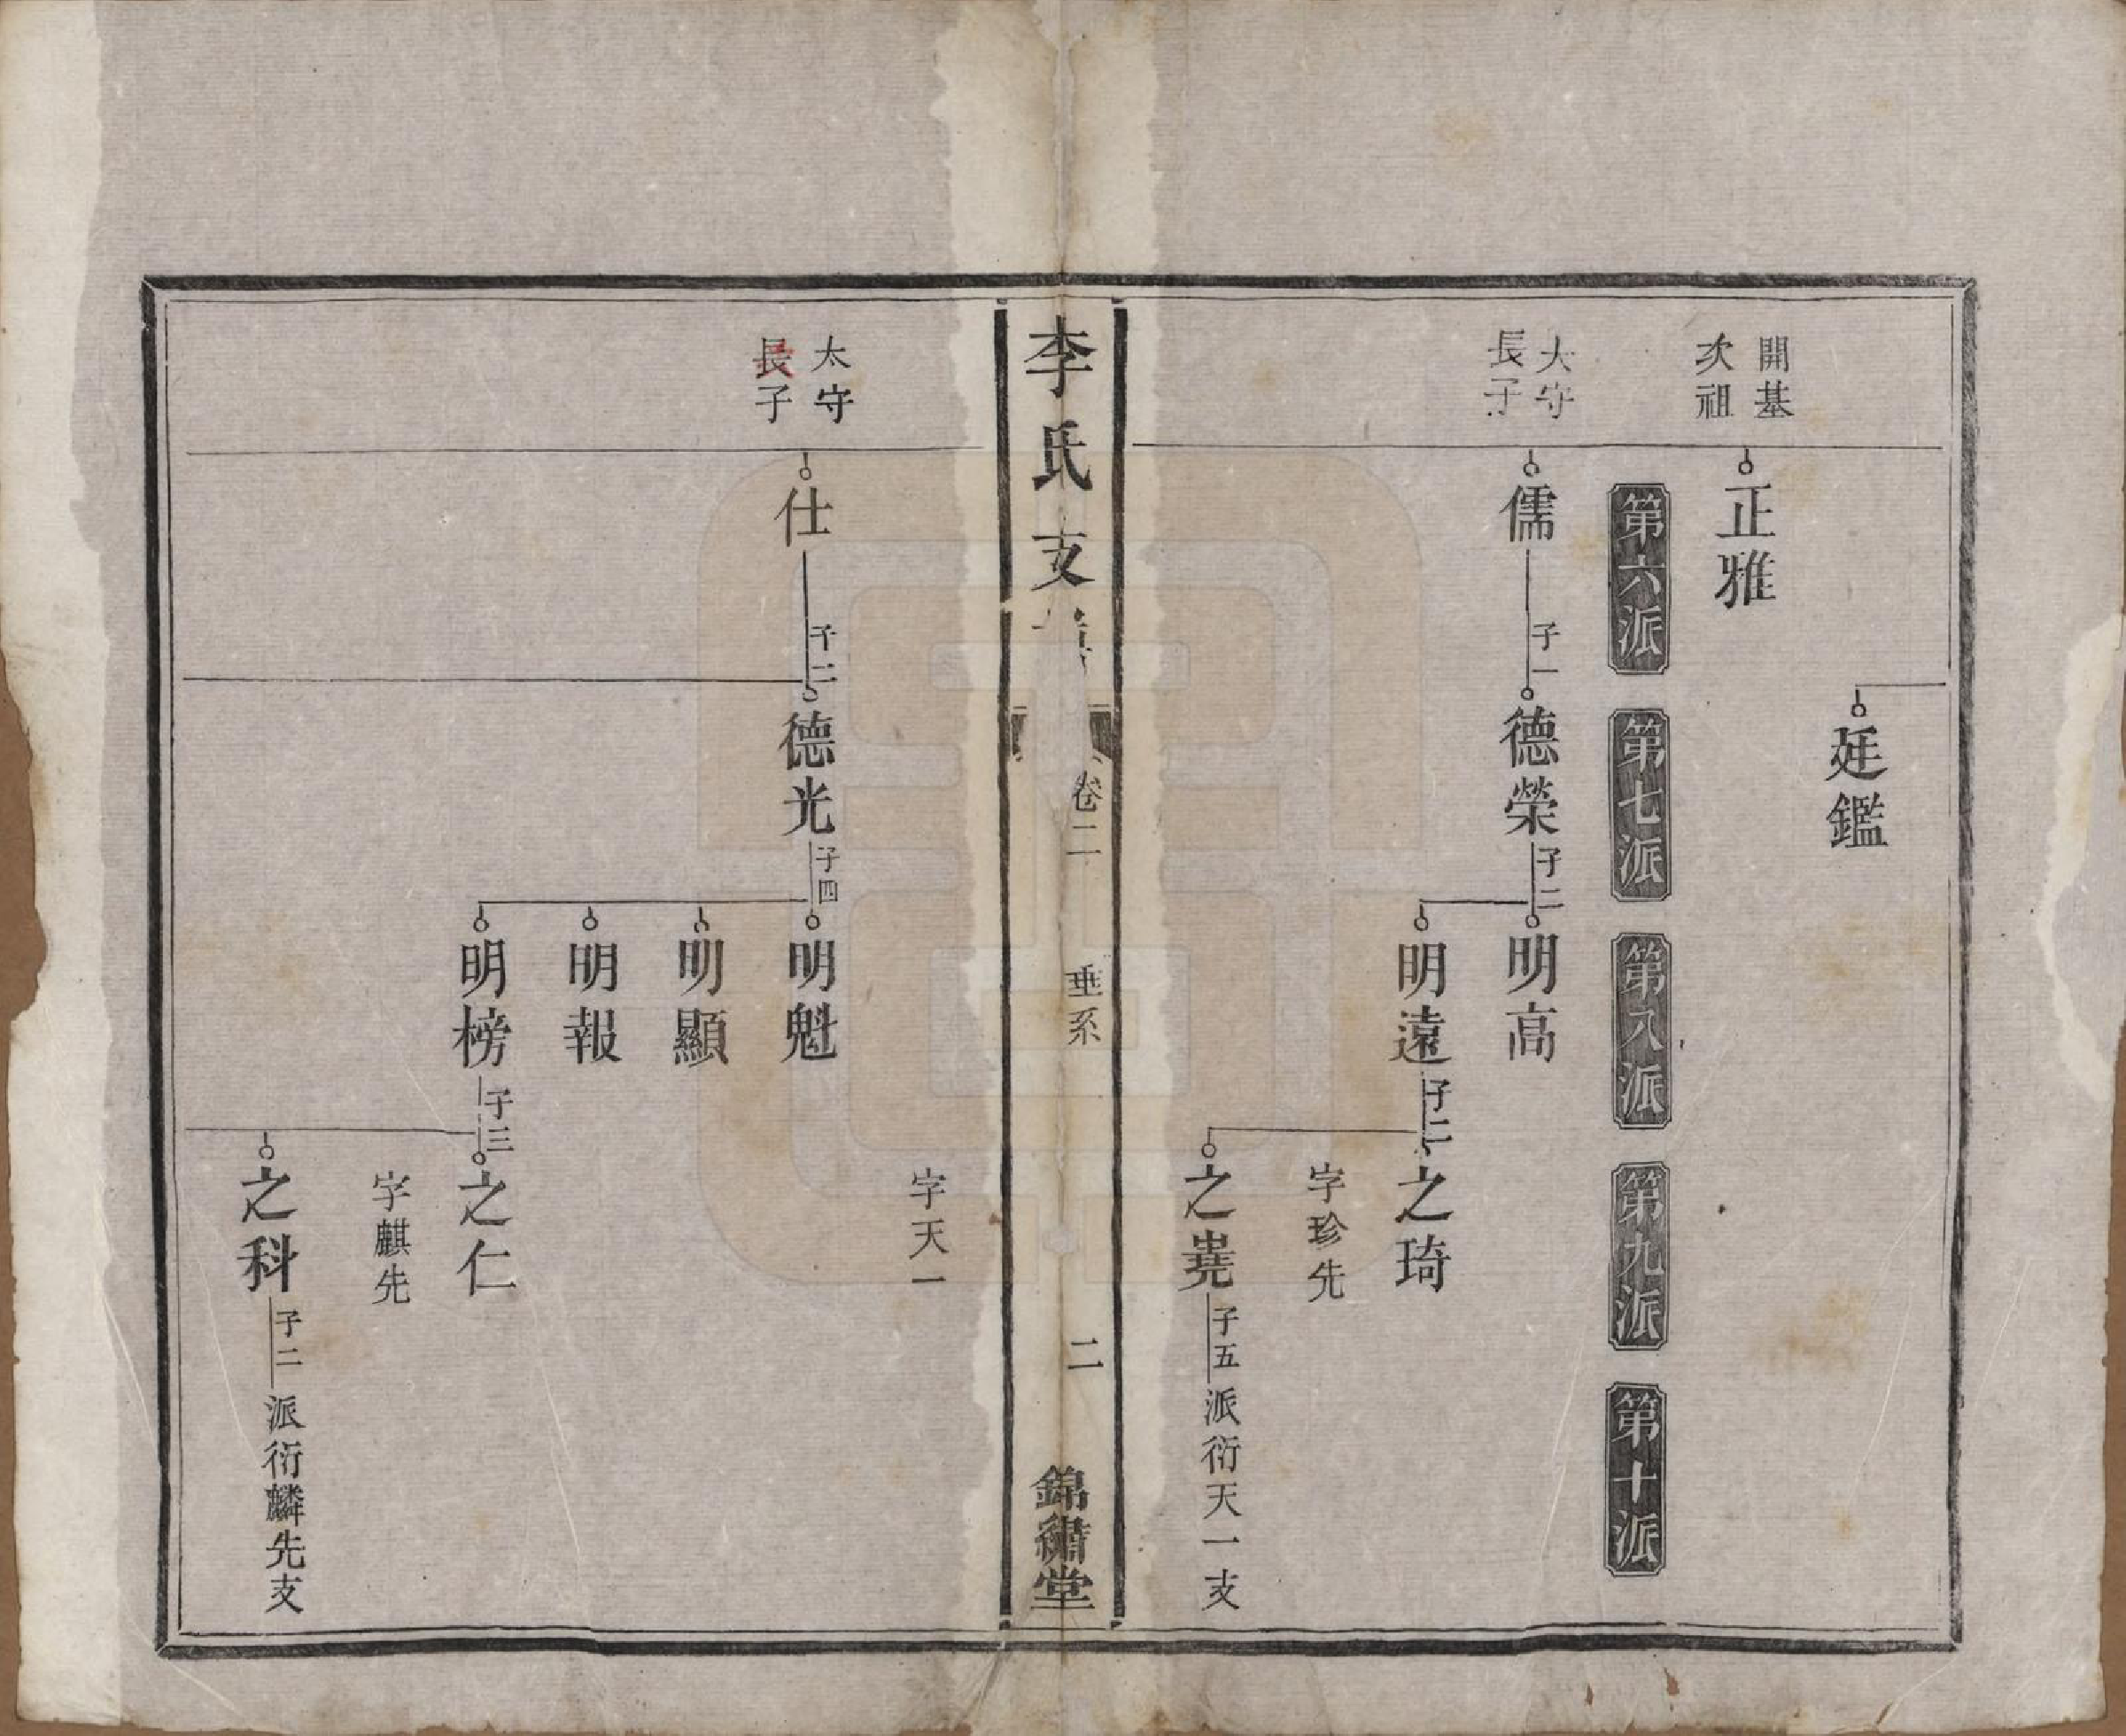 廷鑑
開基
次祖
正雅
第六派
第七派
第八派
第九派
第十派
大守
長子
儒
子一
德榮
子二
明高
明遠
子二
之琦
字珍先
之堯
子五
派衍天一支
李氏支
卷二
垂系
二
錦繡堂
字天一
太守
長子
仕
子二
德光
子四
明魁
明顯
明報
明榜
子三
之仁
字麒先
之科
子二
派衍麟先支